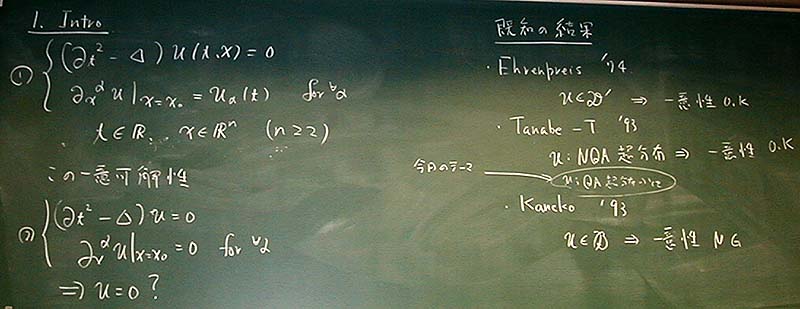 1. Intro
① { (∂t² − Δ) u(t,x) = 0
∂ₓ^α u|ₓ₌ₓ₀ = u_α(t) for ∀α
t ∈ ℝ, x ∈ ℝⁿ (n ≥ 2)
この一意可解性
② { (∂t² − Δ) u = 0
∂ₓ^α u|ₓ₌ₓ₀ = 0 for ∀α
⇒ u = 0 ?
既知の結果
・Ehrenpreis '74
u ∈ 𝒟' ⇒ 一意性 O.K
・Tanabe - T '93
u : NQA 超分布 ⇒ 一意性 O.K
今日のテーマ → u : QA 超分布
・Kaneko '93
u ∈ ℬ ⇒ 一意性 NG